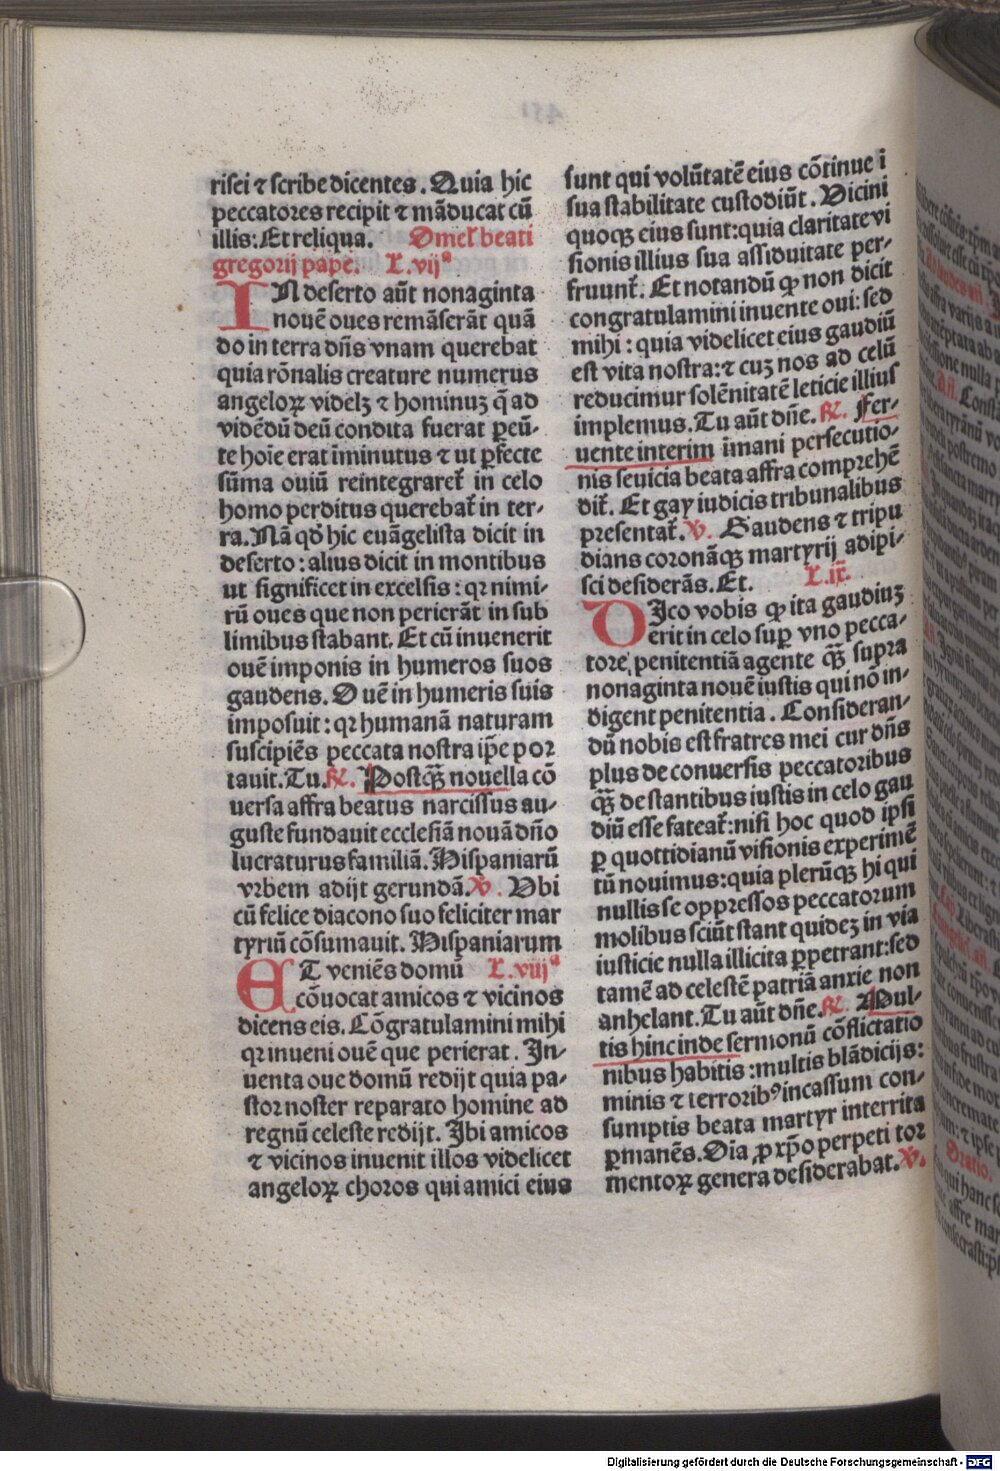 risei ⁊ scribe dicentes. Quia hic
peccatores recipit ⁊ māducat cū
illis: Et reliqua. Omel' beati
gregorij pape. L. vijª
IN deserto aūt nonaginta
nouē oues remāserāt quā
do in terra dn̄s vnam querebat
quia rōnalis creature numerus
angeloꝝ videlꝫ ⁊ hominuꝫ q̄ ad
vidēdū deū condita fuerat ꝑeū-
te hoīe erat īminutus ⁊ ut ꝑfecte
sūma ouiū reintegraret̄ in celo
homo perditus querebat̄ in ter-
ra. Nā qd̓ hic euāgelista dicit in
deserto: alius dicit in montibus
ut significet in excelsis: qꝛ nimi-
rū oues que non perierāt in sub
limibus stabant. Et cū inuenerit
ouē imponis in humeros suos
gaudens. Ouē in humeris suis
imposuit: qꝛ humanā naturam
suscipiēs peccata nostra ip̄e por
tauit. Tu. ℟. Postqᷓꝫ nouella cō
uersa affra beatus narcissus au-
guste fundauit ecclesiā nouā dn̄o
lucraturus familiā. Hispaniarū
vrbem adijt gerundā. ℣. Vbi
cū felice diacono suo feliciter mar
tyriū cōsumauit. Hispaniarum
ET veniēs domū L. viijª
cōuocat amicos ⁊ vicinos
dicens eis. Cōgratulamini mihi
qꝛ inueni ouē que perierat. In-
uenta oue domū redijt quia pa-
stor noster reparato homine ad
regnū celeste redijt. Ibi amicos
⁊ vicinos inuenit illos videlicet
angeloꝝ choros qui amici eius
sunt qui volūtatē eius cōtinue i
sua stabilitate custodiūt. Vicini
quoqꝫ eius sunt: quia claritate vi
sionis illius sua assiduitate per-
fruunt̄. Et notandū ꝙ non dicit
congratulamini inuente oui: sed
mihi: quia videlicet eius gaudiū
est vita nostra: ⁊ cuꝫ nos ad celū
reducimur solēnitatē leticie illius
implemus. Tu aūt dn̄e. ℟. Fer-
uente interim īmani persecutio-
nis seuicia beata affra comprehē
dit̄. Et gay iudicis tribunalibus
presentat̄. ℣. Gaudens ⁊ tripu
dians coronāqꝫ martyrij adipi-
sci desiderās. Et. L. ix.
DIco vobis ꝙ ita gaudiuꝫ
erit in celo suꝑ vno pecca-
tore, penitentiā agente qᷓꝫ supra
nonaginta nouē iustis qui nō in-
digent penitentia. Consideran-
dū nobis est fratres mei cur dn̄s
plus de conuersis peccatoribus
qᷓꝫ de stantibus iustis in celo gau
diū esse fateat̄: nisi hoc quod ipsi
ꝑ quottidianū visionis experimē
tū nouimus: quia plerūqꝫ hi qui
nullis se oppressos peccatorum
molibus sciūt stant quideꝫ in via
iusticie nulla illicita ꝑpetrant: sed
tamē ad celestē patriā anxie non
anhelant. Tu aūt dn̄e. ℟. Mul-
tis hinc inde sermonū cōflictatio
nibus habitis: multis blādicijs:
minis ⁊ terroribꝰ incassum con-
sumptis beata martyr interrita
ꝑmanēs. Oīa ꝓ xp̄o perpeti tor
mentoꝝ genera desiderabat. ℣.
Digitalisierung gefördert durch die Deutsche Forschungsgemeinschaft - DFG